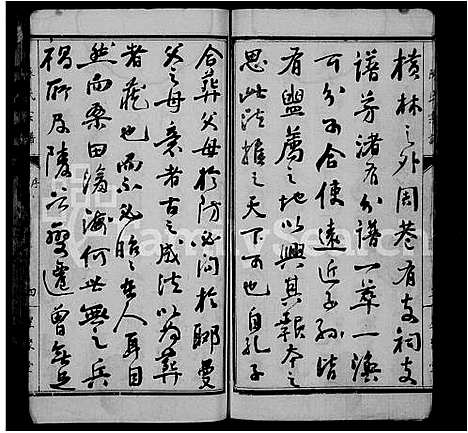 橫林之外周巷有支祠支
譜芳渚有分譜一萃一渙
可分可合使遠近子孫皆
有盥薦之地以興其報本之
思此法推之天下可也自孔子
合葬父母於防必問於郰曼
父之母意者古之成法以為葬
者藏也而不必昭之在人耳目
然而桑田滄海何世無之兵
禍所及陵谷變遷曾無
FamilySearch